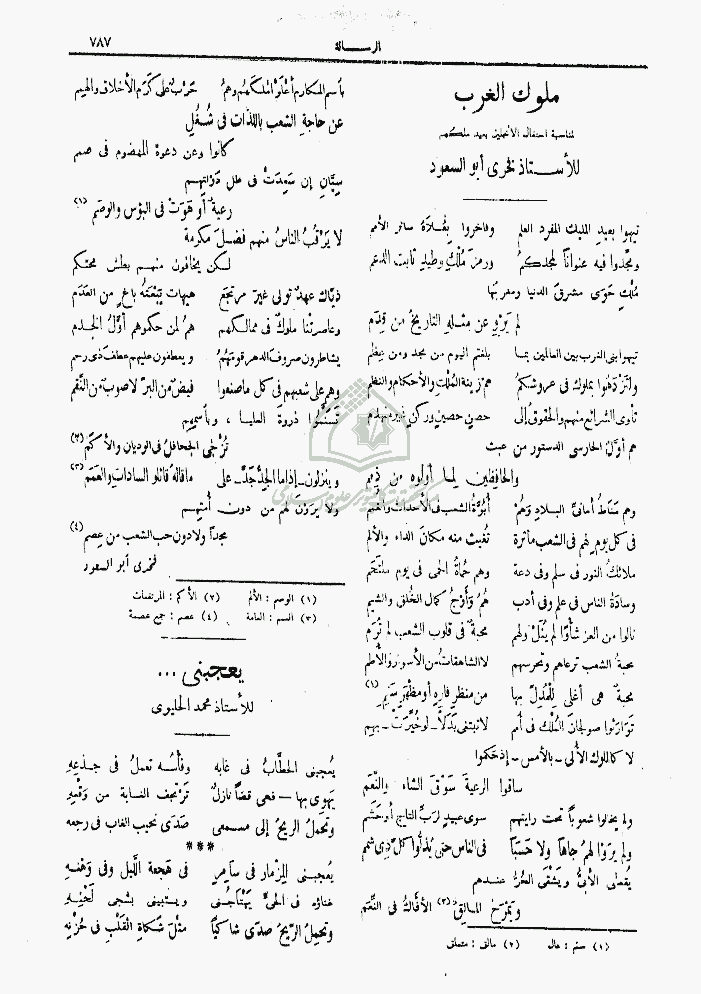 الرسالة
٧٨٧
ملوك الغرب
لمناسبة احتفال الانجليز بعيد ملكهم
للأستاذ فخرى أبو السعود
تيهوا بعيد المليك المفرد العلم وفاخروا سائر الأمم
ومجّدوا فيه عنواناً لمجدكمُ ورمزَ مُلكٍ وطيدٍ ثابت الدعم
مُلكٍ حَوَى مشرقَ الدنيا ومغربَها
لم يَرْوِ عن مثله التاريخُ من قِدَم
تيهوا بنى الغرب بين العالمين بما بلغتم اليوم من مجد ومن عِظم
بملوك فى عروشكمُ هم زينة المُلك والأحكام والنظم
تأوى الشرائع منهم والحقوق إلى حصن حصين وركن غير منهدم
هم أوَّلُ الحارسى الدستور من عبث
والحافظين لما أولوه من ذِمم
وهم مَنَاطُ أمانىِّ البلاد وَهُمْ أبُوَّةُ الشعب فى الأحداث والغمم
فى كل يوم لهم فى الشعب مأثرة تُغيث منه مكانَ الداء والألم
ملائكُ النور فى سلم وفى دعة وهم حُماةُ الحمى فى يوم ملتحَم
وسادةُ الناس فى علم وفى أدب هُمُ وَأَوْجُ كمال الخُلق والشيم
نالوا من العز شأواً لم يُنَلْ ولهم محبةٌ فى قلوب الشعب لم تُرَم
محبةُ الشعب ترعاهم وتحرسهم لا الشاهقاتُ من الأسوار والأطم
محبةٌ هى أغلى بها من منظرٍ فارهٍ أو مظهرٍ سَنِمِ (١)
توارثوا صولجانَ المُلك فى أمم لا تبتغى بَدَلاً ــ لو خُيِّرَتْ ــ بهِمِ
لا كالملوك الأُلى ــ بالأمس ــ إذ حَكموا
ساقوا الرعيةَ سَوْقَ الشاء والنَّعَم
ولم يخالوا شعوباً تحت رايتهم سوى عبيدٍ لربِّ التاج أو حَشَم
ولم يَرَوْا لهمُ جاهاً ولا حَسَباً فى الناس حتى يُذلُّوا كلَّ ذى شمم
يُقصَى الأبىُّ ويَشْقَى الحرُّ عندهم
ويَمْرَحُ المالقُ (٢) الأفاكُ فى النِّعم
(١) سنم : عال (٢) مالق : متملق
بأسم المكارم أعْلَوْا مُلْكَهم وهُمُ حَرْبٌ على كَرَم الأخلاق والهيم
عن حاجة الشعب باللذات فى شُغُلٍ
كانوا وعن دعوة المهضوم فى صمم
سِيَّانِ إن سَعِدَتْ فى ظل دَوْلتهم
رعيةٌ أو هَوَتْ فى البؤس والوصَم (١)
لا يَرْقُبُ الناسُ منهم فضلَ مكرمة
لكن يخافون منهم بطش محتكم
ذيَّاك عهدٌ تولى غير مرتجَعٍ هيهات يَبْعَثُه باغٍ من العَدَم
وعاصرتْنا ملوكٌ فى ممالكهم هم لمن حكموهم أوَّلُ الخدم
يشاطرون صروف الدهر قومَهُمُ ويعطفون عليهم عطف ذى رحم
وهم على شعبهم فى كل ما صنعوا فيض من البرّ لا صوب من النِّقَم
تَسَنَّمُوا ذروةَ العليا ، وبأسمهمِ
تُزْجَى الجحافل فى الوديان والأكم (٢)
وينزلون ــ إذا ما الجِدُّ جَدَّ ــ على ما قاله قائلو السادات والعَمَم (٣)
ولا يرَوْن لهم من دون أمتهم
مجداً ولا دون حب الشعب من عِصم (٤)
فخرى أبو السعود
(١) الوصم : الألم (٢) الأكم : المرتفعات
(٣) العمم : العامة (٤) عصم : جمع عصمة
يعجبنى ...
للأستاذ محمد الحليوى
يُعجبنى الحطَّابُ فى غابه وفأسُه تعملُ فى جذعِهِ
يَهوى بها ــ فهى قضاً نازلٌ تَرْتجف الغابة من وَقْعِهِ
وتحملُ الريحُ إلى مسمعى صَدَى نحيب الغاب فى رجعه
***
يُعجبنى المِزمار فى سامِرٍ فى هَجعة الليل وفى وَهْنِهِ
غناؤه فى الحىِّ يَهْتاجُنى ويستبينى بشجى لَحْنِهِ
وتحملُ الريحُ صدًى شاكياً مثلَ شَكاة القَلْبِ فى حُزْنِهِ